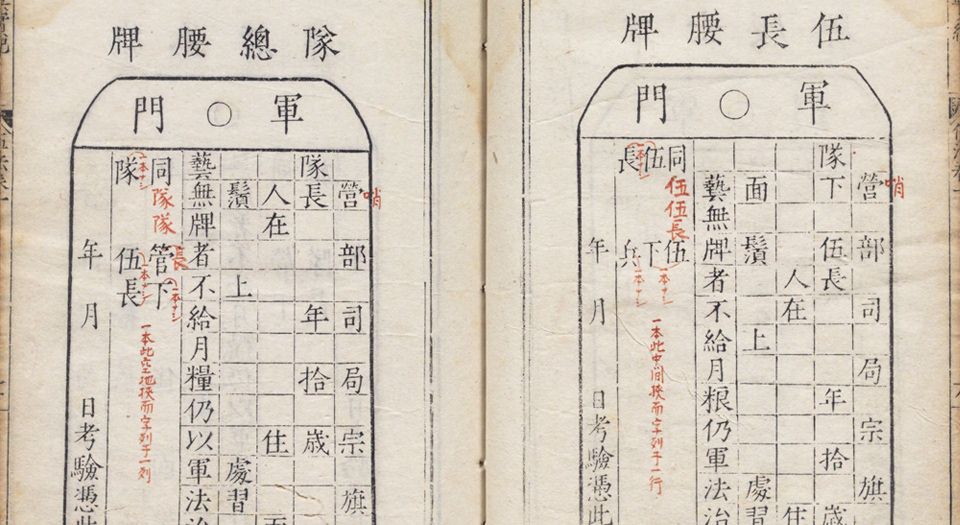 伍長腰牌
軍○門
哨
營部司局宗旗
隊下伍長年拾歲
人在住
面鬚上處習
藝無牌者不給月粮仍軍法治
同伍
伍伍長
伍下
一本ナシ
一本ナシ
長兵
一本ナシ
一本此中間狹而字列于一行
年月日考驗憑此
隊總腰牌
軍○門
哨
營部司局宗旗
隊長年拾歲
人在住
鬚上處習
藝無牌者不給月糧仍以軍法治
同管下
隊隊
長
一本ナシ
隊伍長
一本ナシ
一本ナシ
一本此空地狹而字列于一列
年月日考驗憑此